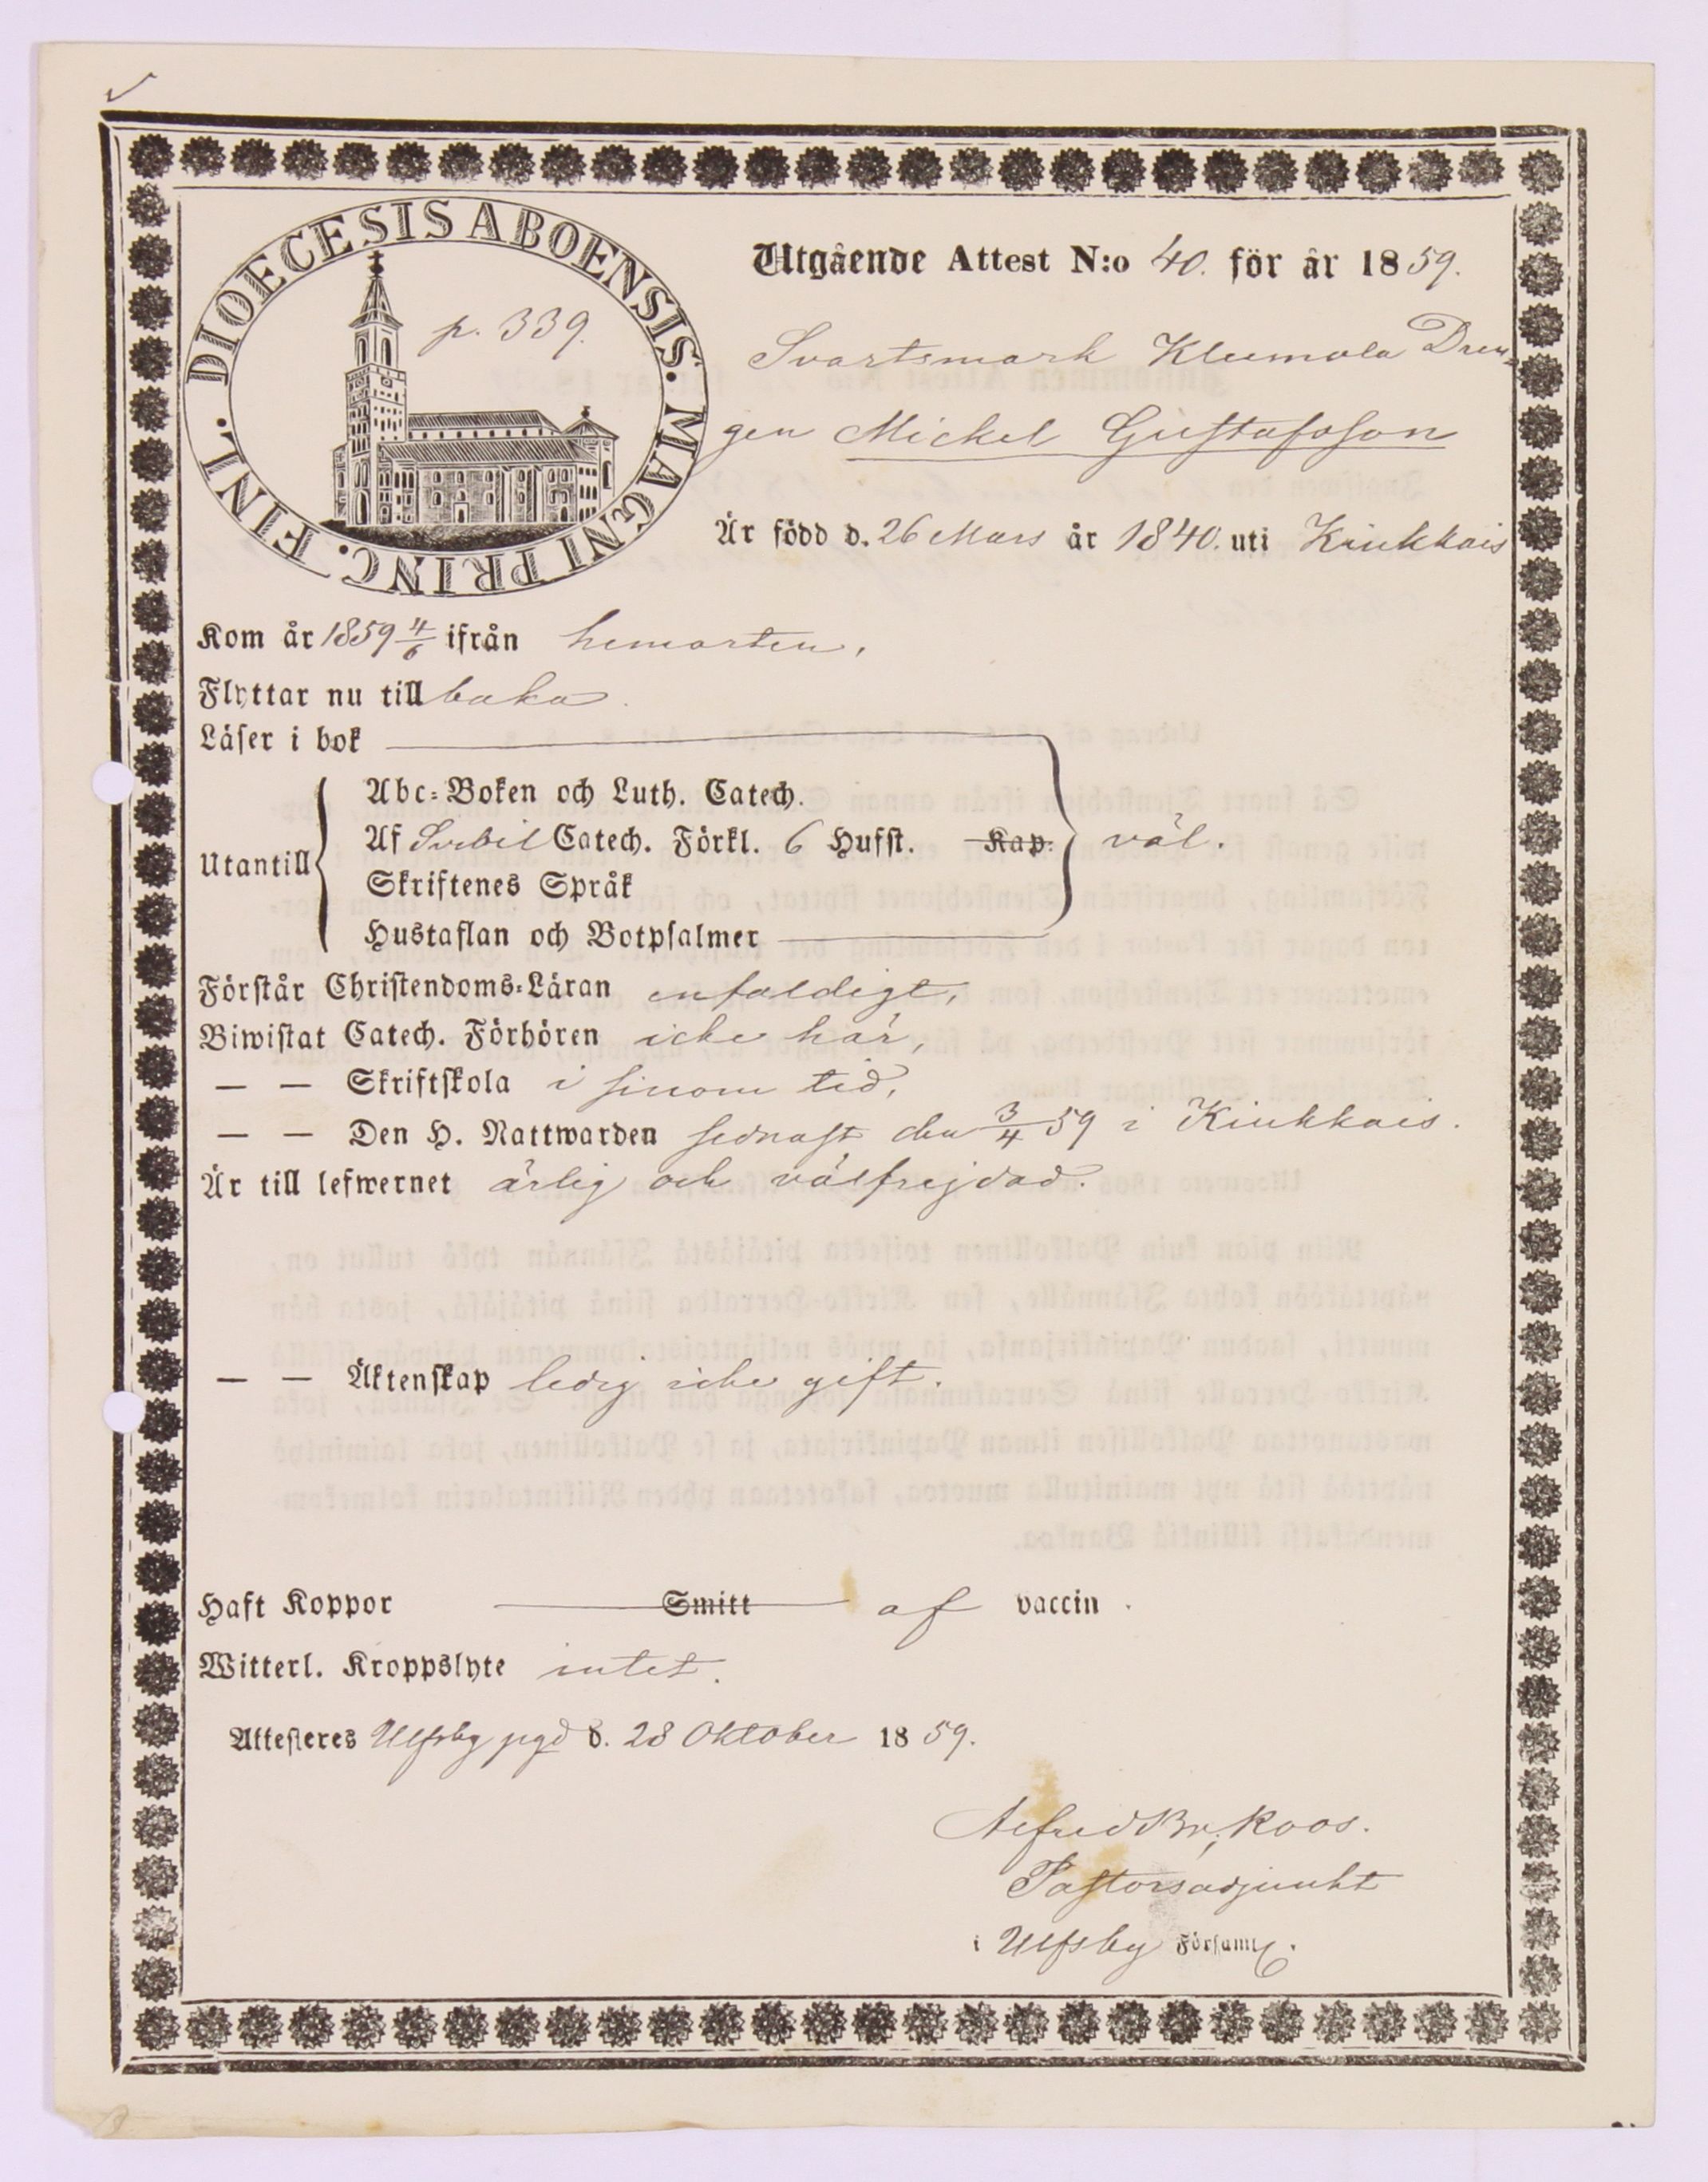 DIOECESIS ABOENSIS. MAGNI PRINC. FINL.
p. 339.
Utgående Attest N:o 40. för år 1859.
Svartsmark Klemola Dren-
gen Mickel Gustafsson
Är född d. 26 Mars år 1840. uti Kiukkais
Kom år 1859 4/6 ifrån hemorten,
Flyttar nu till baka.
Läser i bok
Abc-Boken och Luth. Catech.
Utantill Af Svebil Catech. Förkl. 6 Hufst. Kap: väl.
Skriftenes Språk
Hustaflan och Botpsalmer
Förstår Christendoms-Läran enfaldigt,
Biwistat Catech. Förhören icke här,
— — Skriftskola i sinom tid,
— — Den H. Nattwarden sednast den 3/4 59 i Kiukkais.
Är till lefwernet ärlig och välfrejdad.
— — Äktenskap ledig icke gift.
Haft Koppor Smitt af vaccin.
Witterl. Kroppslyte intet.
Attesteres Ulfsby pgd d. 28 Oktober 1859.
Alfred Br; Roos.
Pastorsadjunkt
i Ulfsby Församl.